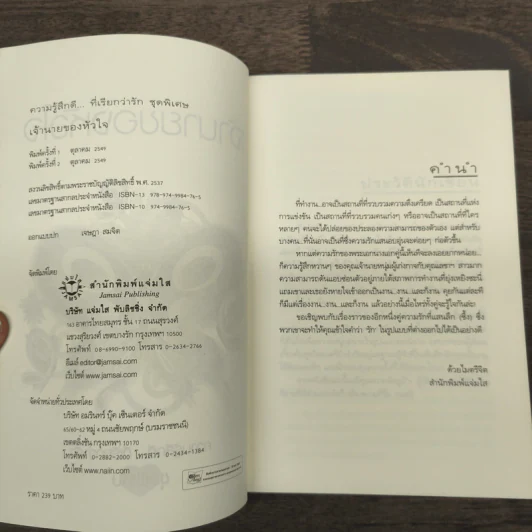 ความรู้สึกดี... ที่เรียกว่ารัก ชุดพิเศษ
เจ้านายของหัวใจ
พิมพ์ครั้งที่ 1 ตุลาคม 2549
พิมพ์ครั้งที่ 2 ตุลาคม 2549
สงวนลิขสิทธิ์ตามพระราชบัญญัติลิขสิทธิ์ พ.ศ. 2537
เลขมาตรฐานสากลประจำหนังสือ ISBN-13 978-974-9984-76-5
เลขมาตรฐานสากลประจำหนังสือ ISBN-10 974-9984-76-5
ออกแบบปก เจษฎา สมจิต
จัดพิมพ์โดย
สำนักพิมพ์แจ่มใส
Jamsai Publishing
บริษัท แจ่มใส พับลิชชิ่ง จำกัด
163 อาคารไทยสมุทร ชั้น 17 ถนนสุรวงศ์
แขวงสุริยวงศ์ เขตบางรัก กรุงเทพฯ 10500
โทรศัพท์ 08-6990-9100 โทรสาร 0-2634-2766
อีเมล์ editor@jamsai.com
เว็บไซต์ www.jamsai.com
จัดจำหน่ายทั่วประเทศโดย
บริษัท อมรินทร์ บุ๊ค เซ็นเตอร์ จำกัด
65/60-62 หมู่ 4 ถนนชัยพฤกษ์ (บรมราชชนนี)
เขตตลิ่งชัน กรุงเทพฯ 10170
โทรศัพท์ 0-2882-2000 โทรสาร 0-2434-1384
เว็บไซต์ www.naiin.com
ราคา 239 บาท
คำนำ
ที่ทำงาน...อาจเป็นสถานที่ที่รวบรวมความตึงเครียด เป็นสถานที่แห่ง
การแข่งขัน เป็นสถานที่ที่รวบรวมคนเก่งๆ หรืออาจเป็นสถานที่ที่ใคร
หลายๆ คนจะได้ปลดปล่อยของความสามารถของตัวเอง แต่สำหรับ
บางคน...ที่นั่นอาจเป็นที่ซึ่งความรักแสนอบอุ่นจะค่อยๆ ก่อตัวขึ้น
ก็ความรู้สึกหวานๆ ของคุณเจ้านายหนุ่มผู้เก่งกาจกับคุณเลขาฯ สาวมาก
ความสามารถ
ก็มีแต่เรื่องงาน...งาน...และก็งาน แล้วอย่างนี้เมื่อไหร่ทั้งคู่จะรู้ใจกันล่ะ
ขอเชิญพบกับเรื่องราวของอีกหนึ่งคู่ความรักที่แสนลึก (ซึ้ง) ซึ่ง
พวกเขาจะทำให้คุณเข้าใจคำว่า 'รัก' ในรูปแบบที่ต่างออกไปได้เป็นอย่างดี
ด้วยไมตรีจิต
สำนักพิมพ์แจ่มใส